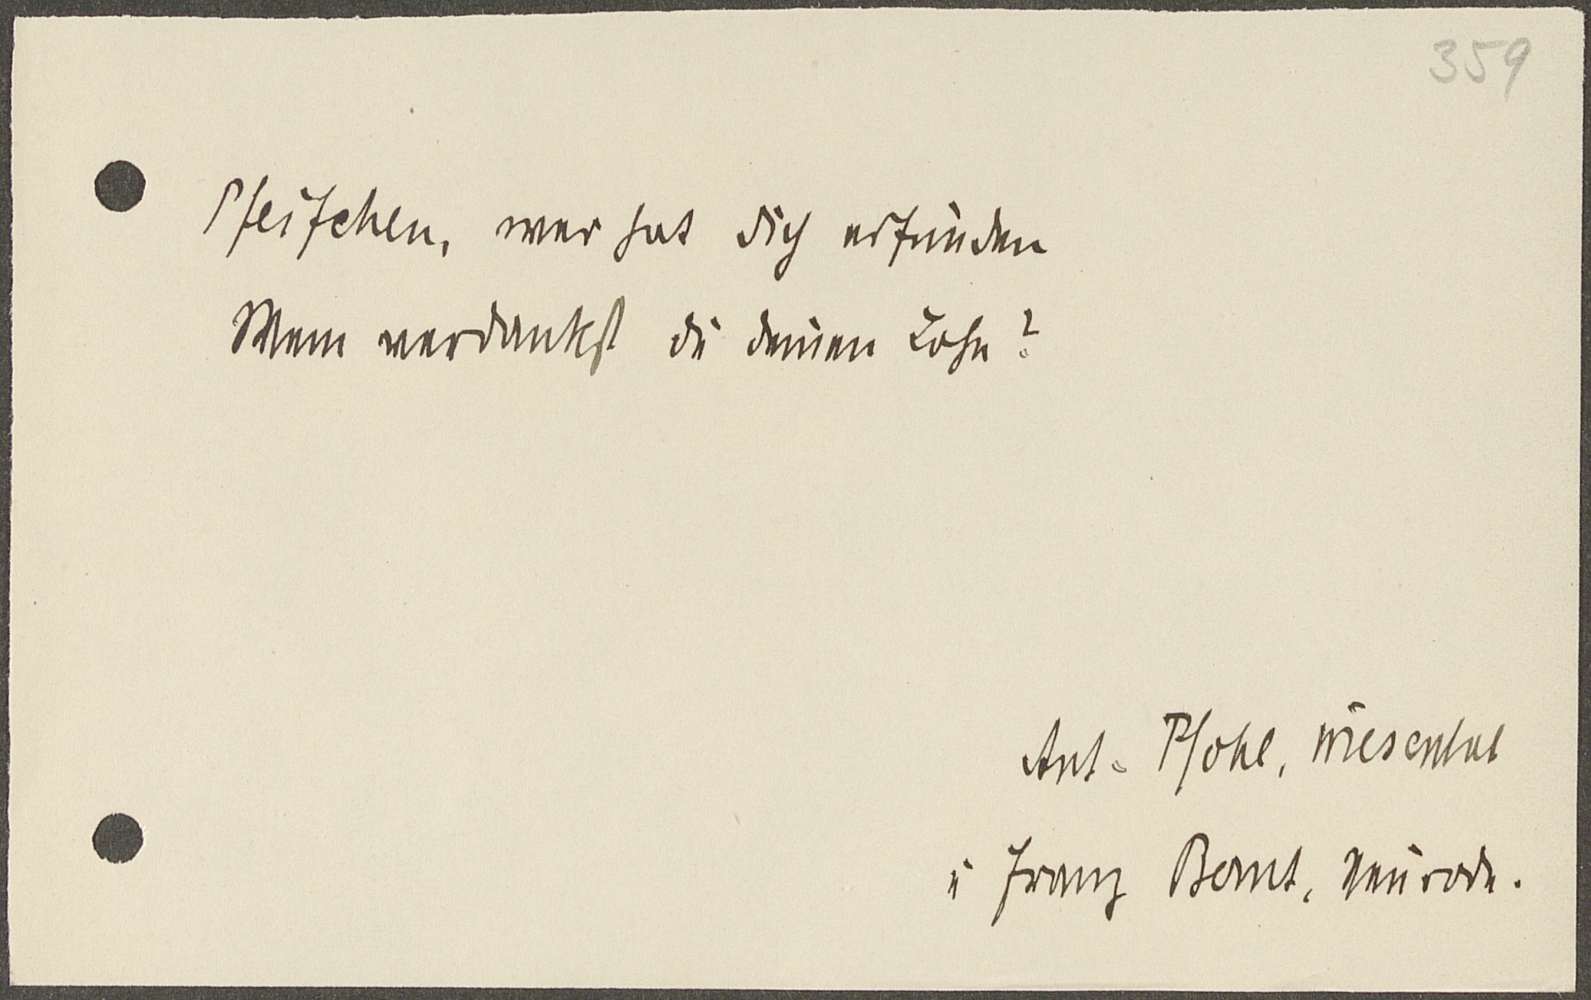 359
Pfeifchen, wer hat dich erfunden
Wem verdankst du deinen Lohn?
Ant. Pfohl, Wiesenthal
u Franz Bamt, Neurode.